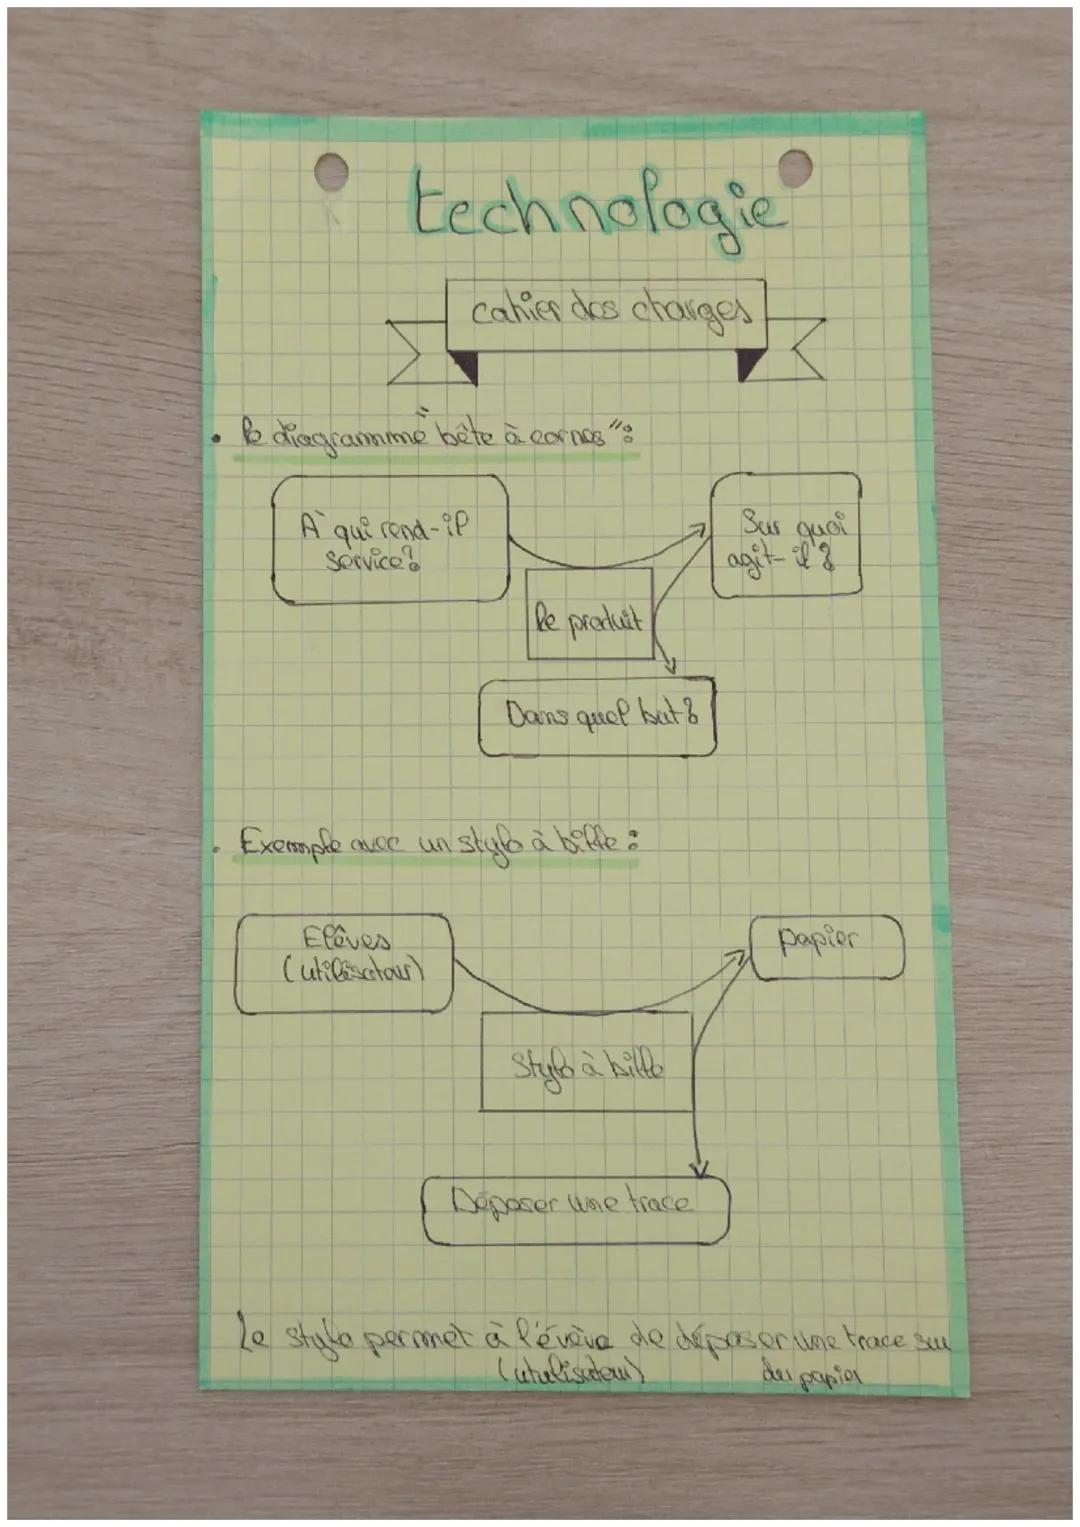 technologie
cahier des charges
• le diagramme "bête à cornes" :
A qui rend-il
service ?
Sur quoi
agit-il ?
le produit
Dans quel but ?
• Exemple avec un stylo à bille :
Elèves
(utilisateur)
papier
Stylo à bille
Déposer une trace
Le stylo permet à l'évève de déposer une trace sur
(utulisateur) du papier